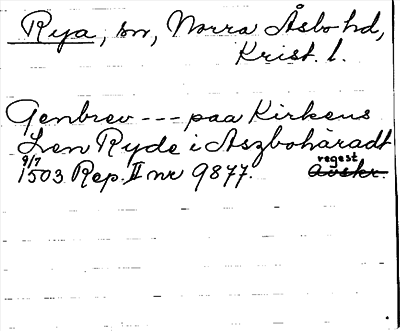 Rya, sn, Norra Åsbo hd,
Krist. l.
Genbrev --- paa Kirkens
Len Ryde i Aszbohäradt
9/7 1503 Rep. II nr 9877. regest
Avskr.